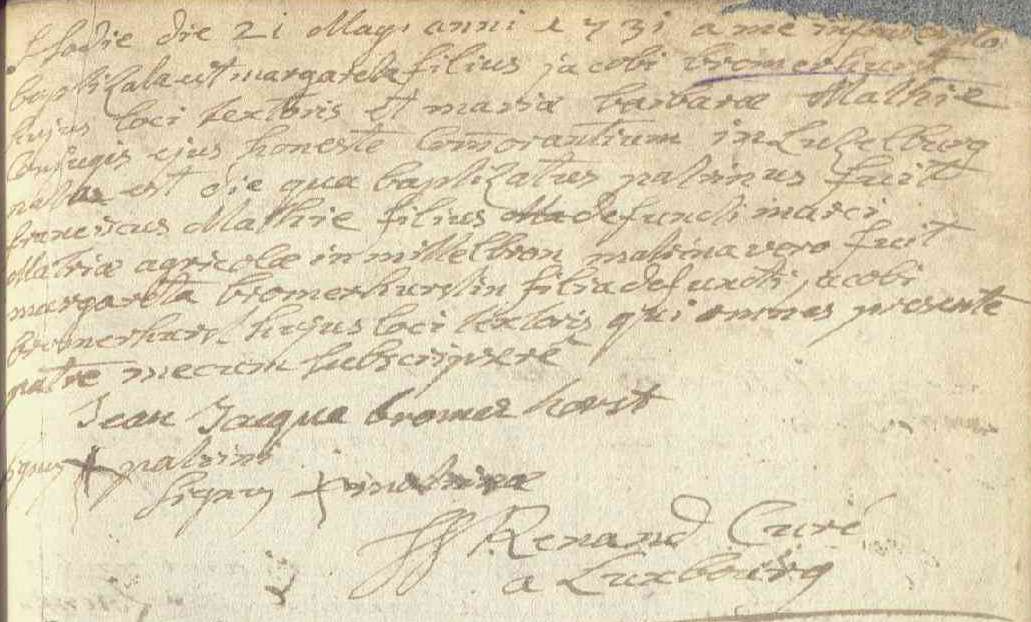 Hodie die 21 Maÿi anni 1731 a me infrascripto
baptizata est margareta filius jacobi bromerhurst
hujus loci textoris et mariæ barbaræ Mathie
Conjugis ejus honeste Comorantium in Lutzelburg
natus est die qua baptizatus patrinus fuit
franciscus Mathie filius defuncti marci
Matriæ agricolæ in mittelbron matrina vero fuit
margareta bromerhurstin filia defuncti jacobi
bromerhurst hujus loci textoris qui omnes presente
patre mecum subscripsere
Jean Jacque bromer horst
signum + patrini
signum + matrinæ
Renand Curé
a Luxbourg